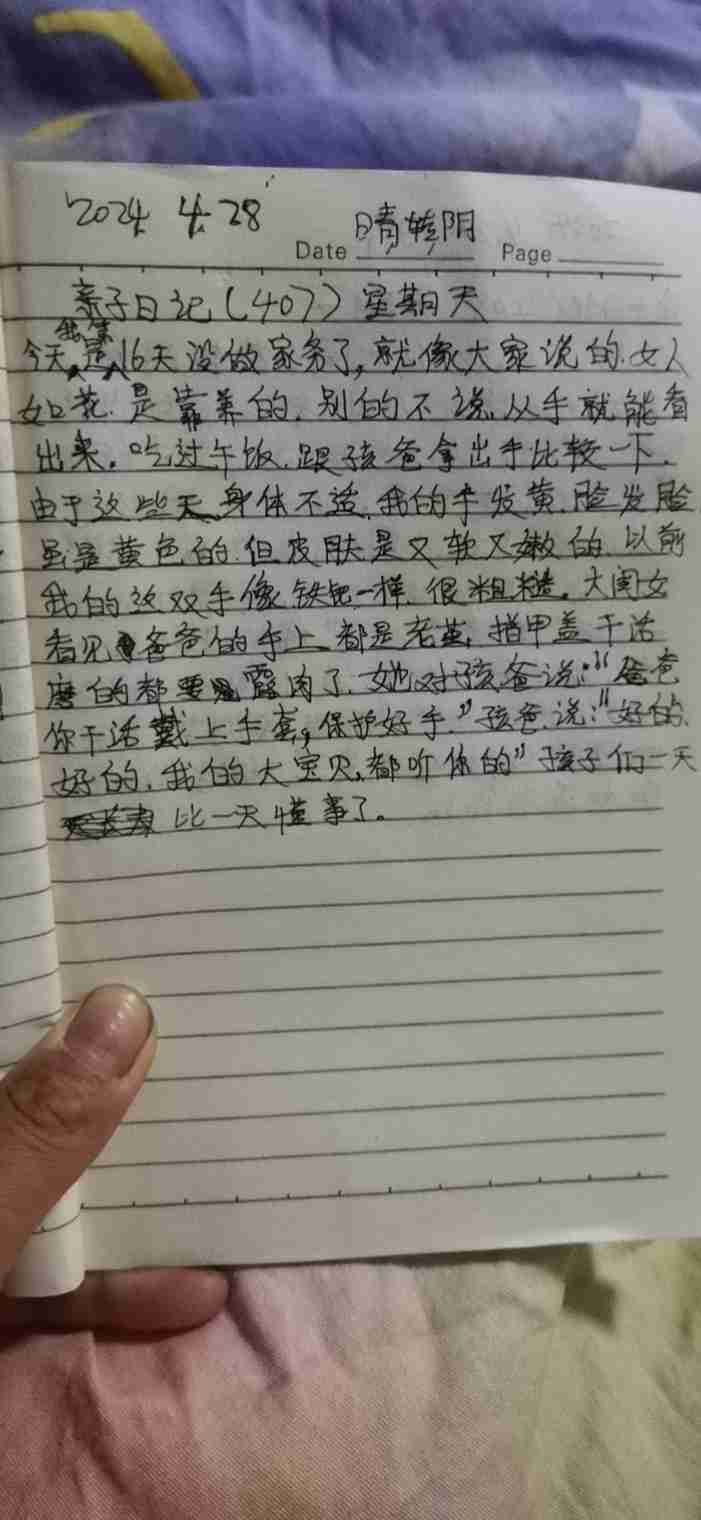 2024 4.28
晴转阴
Date Page
亲子日记(407) 星期天
今天是我第16天没做家务了,就像大家说的.女人
如花.是靠养的.别的不说.从手就能看
出来。吃过午饭.跟孩爸拿出手比较一下.
由于这些天身体不适.我的手发黄.脸发脸
虽是黄色的.但皮肤是又软又嫩的.以前
我的这双手像铁皂一样.很粗糙。大闺女
看见爸爸的手上.都是老茧,指甲盖干活
磨的都要露肉了.她对孩爸说:“爸爸
你干活戴上手套,保护好手.”孩爸.说:“好的.
好的.我的大宝贝,都听你的”孩子们一天
比一天懂事了。